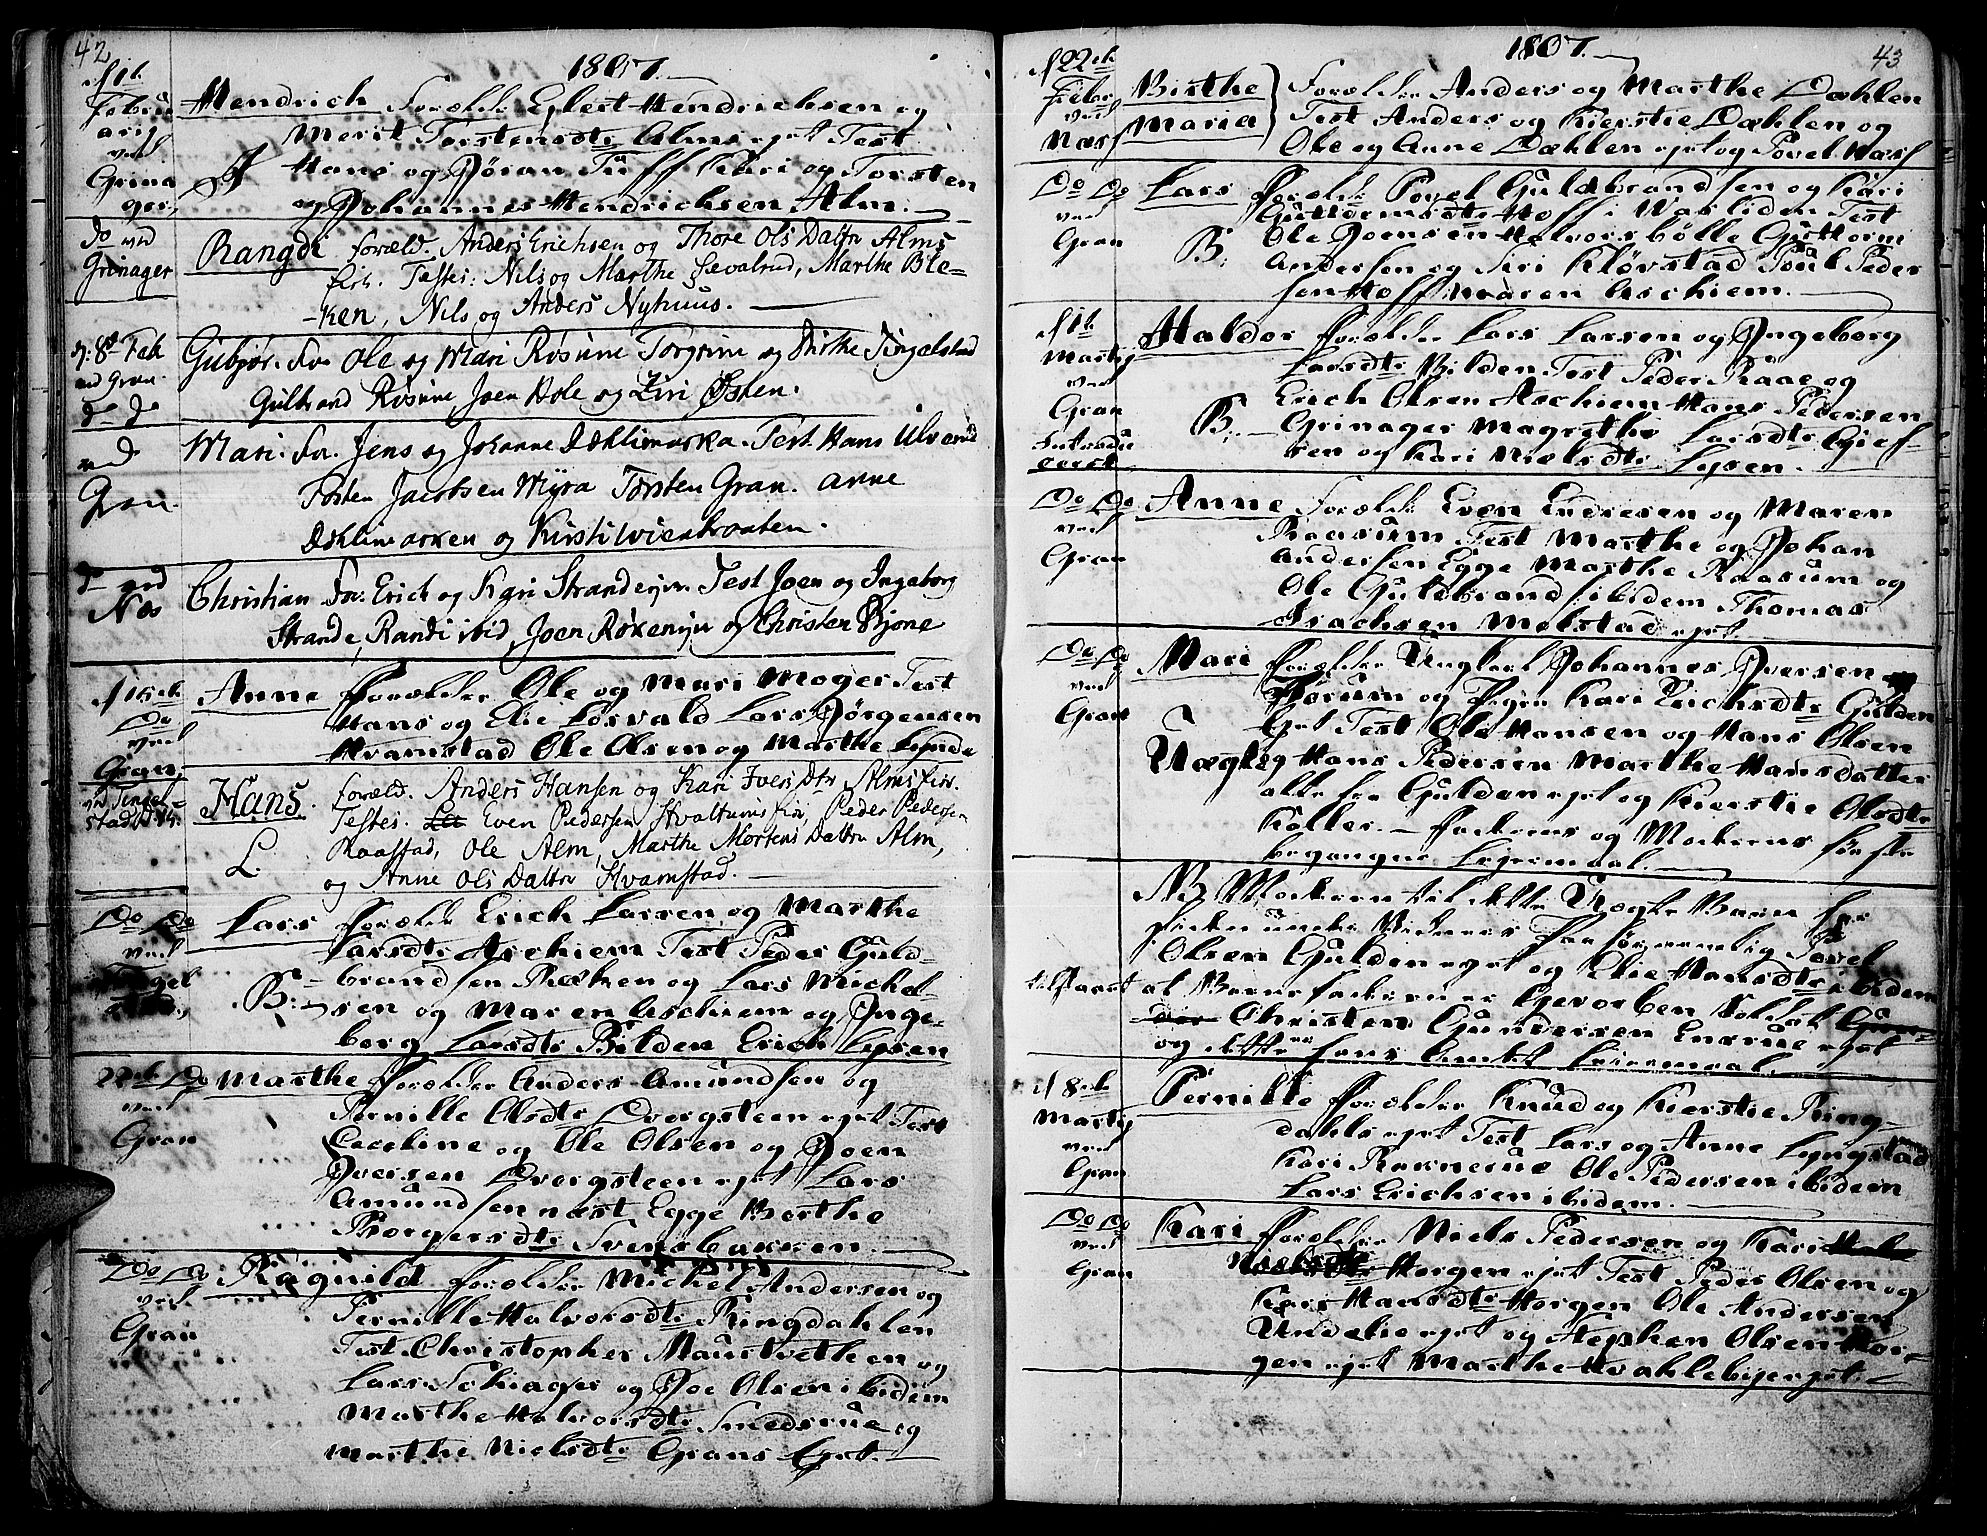 42
1807.
d 1te Februarij ved Grinager,
Hendrich Forældr Eglest Hendrichsen og
Merit Torstensdtr Alms ejet Test
Hans og Jöran Tuff Kari og Torsten
og Johannes Hendrichsen Alm.
do ved Grinager
Rangdi foræld. Anders Erichsen og Thore Ols Dattr Alms
ejet. Testes: Nils og Marthe Hævalrud, Marthe Ble-
-ken, Nils og Anders Nyhuus.
d: 8de Feb ved Gran
Gubjør. For. Ole og Mari Røsüne Torgrim og Birthe Tingelstad
Gulbrand Røsüne Joen Hole og Siri Østen.
do do ved Gran.
Mari. For. Jens og Johanne Dæhlimarka. Test. Hans Ulverud
Tosten Jacobsen Myra Torsten Gran. Anne
Dæhlimarken og Kirsti
do ved Næs
Christian For: Erich og Kari Strandejen Test Joen og Ingeborg
Strande, Randi ibid, Joen Røkenejen og Christen Bjone
d 15de Do ved Gran.
Anne Forældre Ole og Mari Moger Test
Hans og Elie Lösvald Lars Jörgensen
Hvamstad Ole Olsen og Marthe Lynde
ved Tingelstad d: 15.
Hans. foræld. Anders Hansen og Kari IversDtr Alms eje.
Testes. Even Pedersen Hvaltums eje, Peder Peders:
L. Raastad, Ole Alm, Marthe Mortens Dattr Alm,
og Anne Ols Dattr Hvamstad.
Do Do ved Tingelstad,
Lars Forældr Erich Larsen og Marthe
Larsdtr Aschiem Test Peder Guld-
brandsen Ræken og Lars Michel-
B: sen og Maren Aschiem og Inge-
borg Larsdtr Bilden Erich Lysen
22de Do ved Gran
Marthe Forældre Anders Amundsen og
Pernille Olsdtr Dvergsteen ejet Test
Ceceline og Ole Olsen og Joen
Iversen Dvergsteen ejet Lars
Amundsen næst Egge Berthe
Borgersdtr Svensbakken.
Do Do ved Gran
Ragnild Forældre Michel Andersen og
Pernille Halvorsdtr Ringdahlen
Test Christopher Maurtvethen og
Lars Schiager og Joe Olsen ibidem
Marthe Halvorsdtr Smedsrue og
Marthe Nielsdtr Grans Ejet.
1807.
43
d 22de Febr ved Næss
Birthe Maria } Forældre Anders og Marthe Dæhlen
Test Anders og Kierstie Dæhlen og
Ole og Anne Dæhlen ejet og Povel Næss
Do Do ved Gran
Lars Forældr Povel Guldbrandsen og Kari
Guttormsdtr Hoff i Warliden Test
B: Ole Joensen Halvorsbölle Guttorm
Andersen og Siri Klövstad Poul Peder
sen Hoff Maren Aschiem.
d 1te Martij ved Gran
Haldor Forældre Lars Larsen og Ingeborg
Larsdtr Bilden Test Peder Raae og
Erich Olsen Aschiem Hans Pedersen
B: Grinager Magrethe Larsdtr Gief-
sen og Kari Nielsdtr Lysen.
Introduceret
Do Do ved Gran
Anne Forældr Even Endresen og Maren
Raasum Test Marthe og Johan
Andersen Egge Marthe Raasum og
Ole Guldbrands ibidem Thomas
Isachsen Molstad ejet
Do Do ved Gran
Mari Forældre Ungkarl Johannes Iversen
Horum og Pigen Kari Erichsdtr Gulden
Ejet Test Ole Hansen og Hans Olsen
Uægte og Hans Pedersen Marthe Hansdatter
alle fra Gulden ejet og Kierstie Olsdtr
Koller. Faderens og Moderens første
begangne Lejermaal.
NB Moderen til dette Uægte Barn har
siden under Vidners Paahør nemlig Povel
Olsen Gulden ejet og Elie Hansdtr ibidem
tilstaaet at Barnefaderen er Gevorben Soldat
Christen Gundersen Ensrue ejet
og dette er hans Andet Leiermaal.
d 8de Martij ved Gran
Pernille Forældre Knud og Kierstie Ring-
dahls ejet Test Lars og Anne Lyngstad
Kari Raknerue Ole Pedersen ibidem
Lars Erichsen ibidem.
Do Do ved Gran
Kari Forældre Niels Pedersen og Kari
Nielsdtr Horgen ejet Test Peder Olsen og
Kari Hansdtr Horgen Ole Andersen
Undelie ejet og Stephen Olsen Hor-
gen ejet Marthe Hvalebyejet.